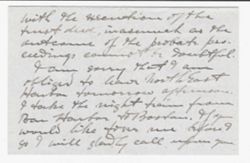 with the execution of the
trust deed, inasmuch as the
outcome of the probate pro-
ceedings cannot be doubtful.
I am sorry that I am
obliged to leave North East
Harbor tomorrow afternoon.
I take the night train from
Bar Harbor to Boston. If you
would like to see me before
go I will gladly call upon you